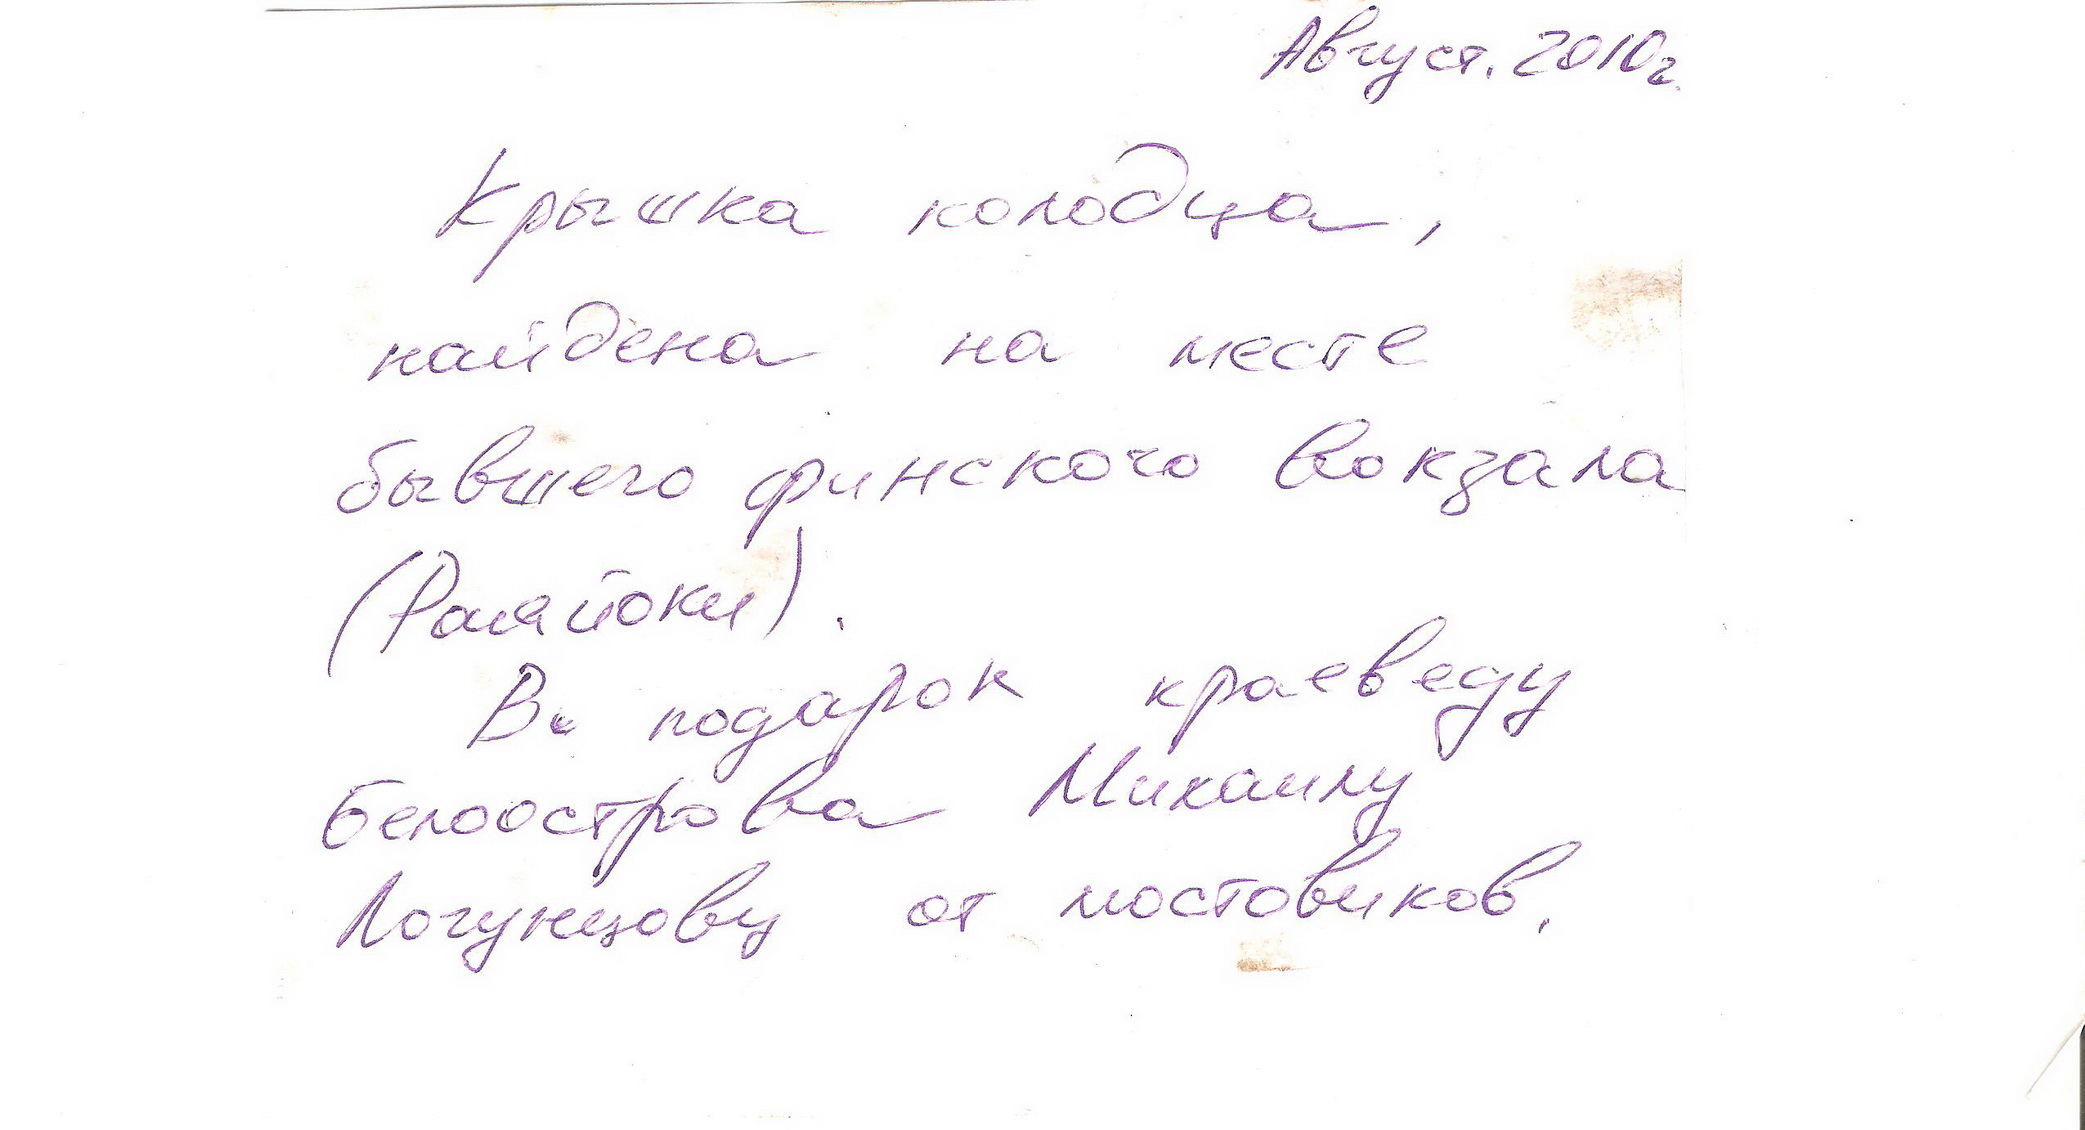 Август. 2010г.
Крышка колодца,
найдена на месте
бывшего финского вокзала
(Раяйоки).
В подарок краеведу
Белоострова Михаилу
Логунцову от мостовиков.